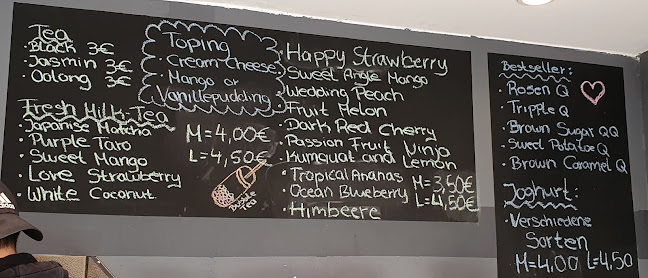 Tea
· Black 3€
· Jasmin 3€
· Oolong 3€
Fresh Milk-Tea
· Japanise Matcha
· Purple Taro
· Sweet Mango
· Love Strawberry
· White Coconut
M = 4,00€
L = 4,50€
Toping
· Cream Cheese
· Mango or
Vanillepudding
Bubble
Tea
· Happy Strawberry
· Sweet Angle Mango
· Wedding Peach
· Fruit Melon
· Dark Red Cherry
· Passion Fruit Ninjo
· Kumquat and Lemon
· Tropical Ananas M = 3,50€
· Ocean Blueberry L = 4,50€
· Himbeere
Bestseller:
· Rosen Q
· Tripple Q
· Brown Sugar QQ
· Sweet Potatoe Q
· Brown Caramel Q
Joghurt:
· Verschiedene
Sorten
M = 4,00 L = 4,50